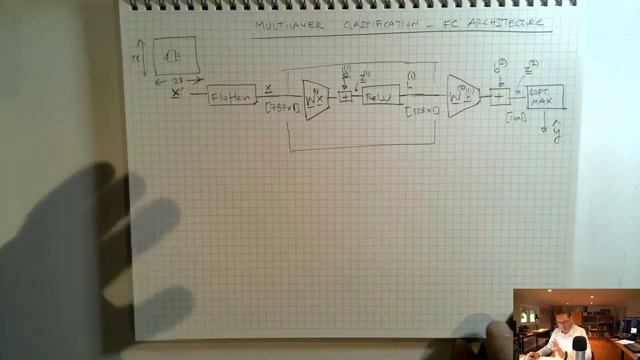 MULTILAYER CLASSIFICATION - FC ARCHITECTURE
28
28
X' Flatten x [784x1] W⁽¹⁾x b⁽¹⁾ + z⁽¹⁾ ReLU h⁽¹⁾ [128x1] W⁽²⁾h⁽¹⁾ b⁽²⁾ + z⁽²⁾ [10x1] SOFT
MAX
ŷ